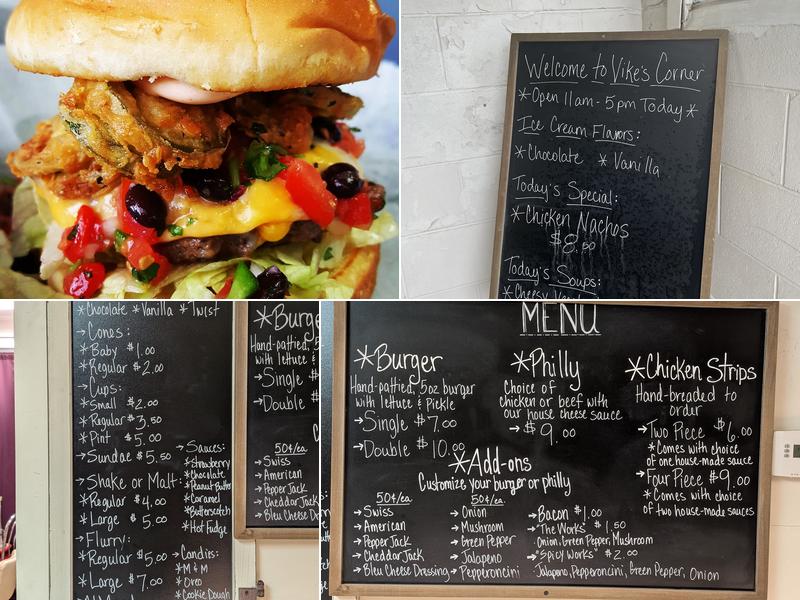 Welcome to Vike's Corner
*Open 11am-5pm Today*
Ice Cream Flavors:
*Chocolate *Vanilla
Today's Special:
*Chicken Nachos
$8.00
Today's Soups:
*Cheesy
*Chocolate *Vanilla *Twist
→Cones:
*Baby $1.00
*Regular $2.00
→Cups:
*Small $2.00
*Regular $3.50
*Pint $5.00
→Sundae $5.50
→Shake or Malt:
*Regular $4.00
*Large $5.00
→Flurry:
*Regular $5.00
*Large $7.00
→Sauces:
*Strawberry
*Chocolate
*Peanut Butter
*Caramel
*Butterscotch
*Hot Fudge
→Candies:
*M&M
*Oreo
*Cookie Dough
*Burge
Hand-pattied, 5
with lettuce &
→Single $
→Double $
50¢/ea
→Swiss
→American
→Pepper Jack
→Cheddar Jack
→Bleu Cheese D
MENU
*Burger
Hand-pattied, 5oz burger
with lettuce & Pickle
→Single $7.00
→Double $10.00
*Philly
Choice of
chicken or beef with
our house cheese sauce
→$9.00
*Chicken Strips
Hand-breaded to
order
→Two Piece $6.00
*Comes with choice
of one house-made sauce
→Four Piece $9.00
*Comes with choice
of two house-made sauces
*Add-ons
Customize your burger or philly
50¢/ea
→Swiss
→American
→Pepper Jack
→Cheddar Jack
→Bleu Cheese Dressing
50¢/ea
→Onion
→Mushroom
→Green Pepper
→Jalapeno
→Pepperoncini
→Bacon $1.00
→"The Works" $1.50
Onion, Green Pepper, Mushroom
→"Spicy Works" $2.00
Jalapeno, Pepperoncini, Green Pepper, Onion